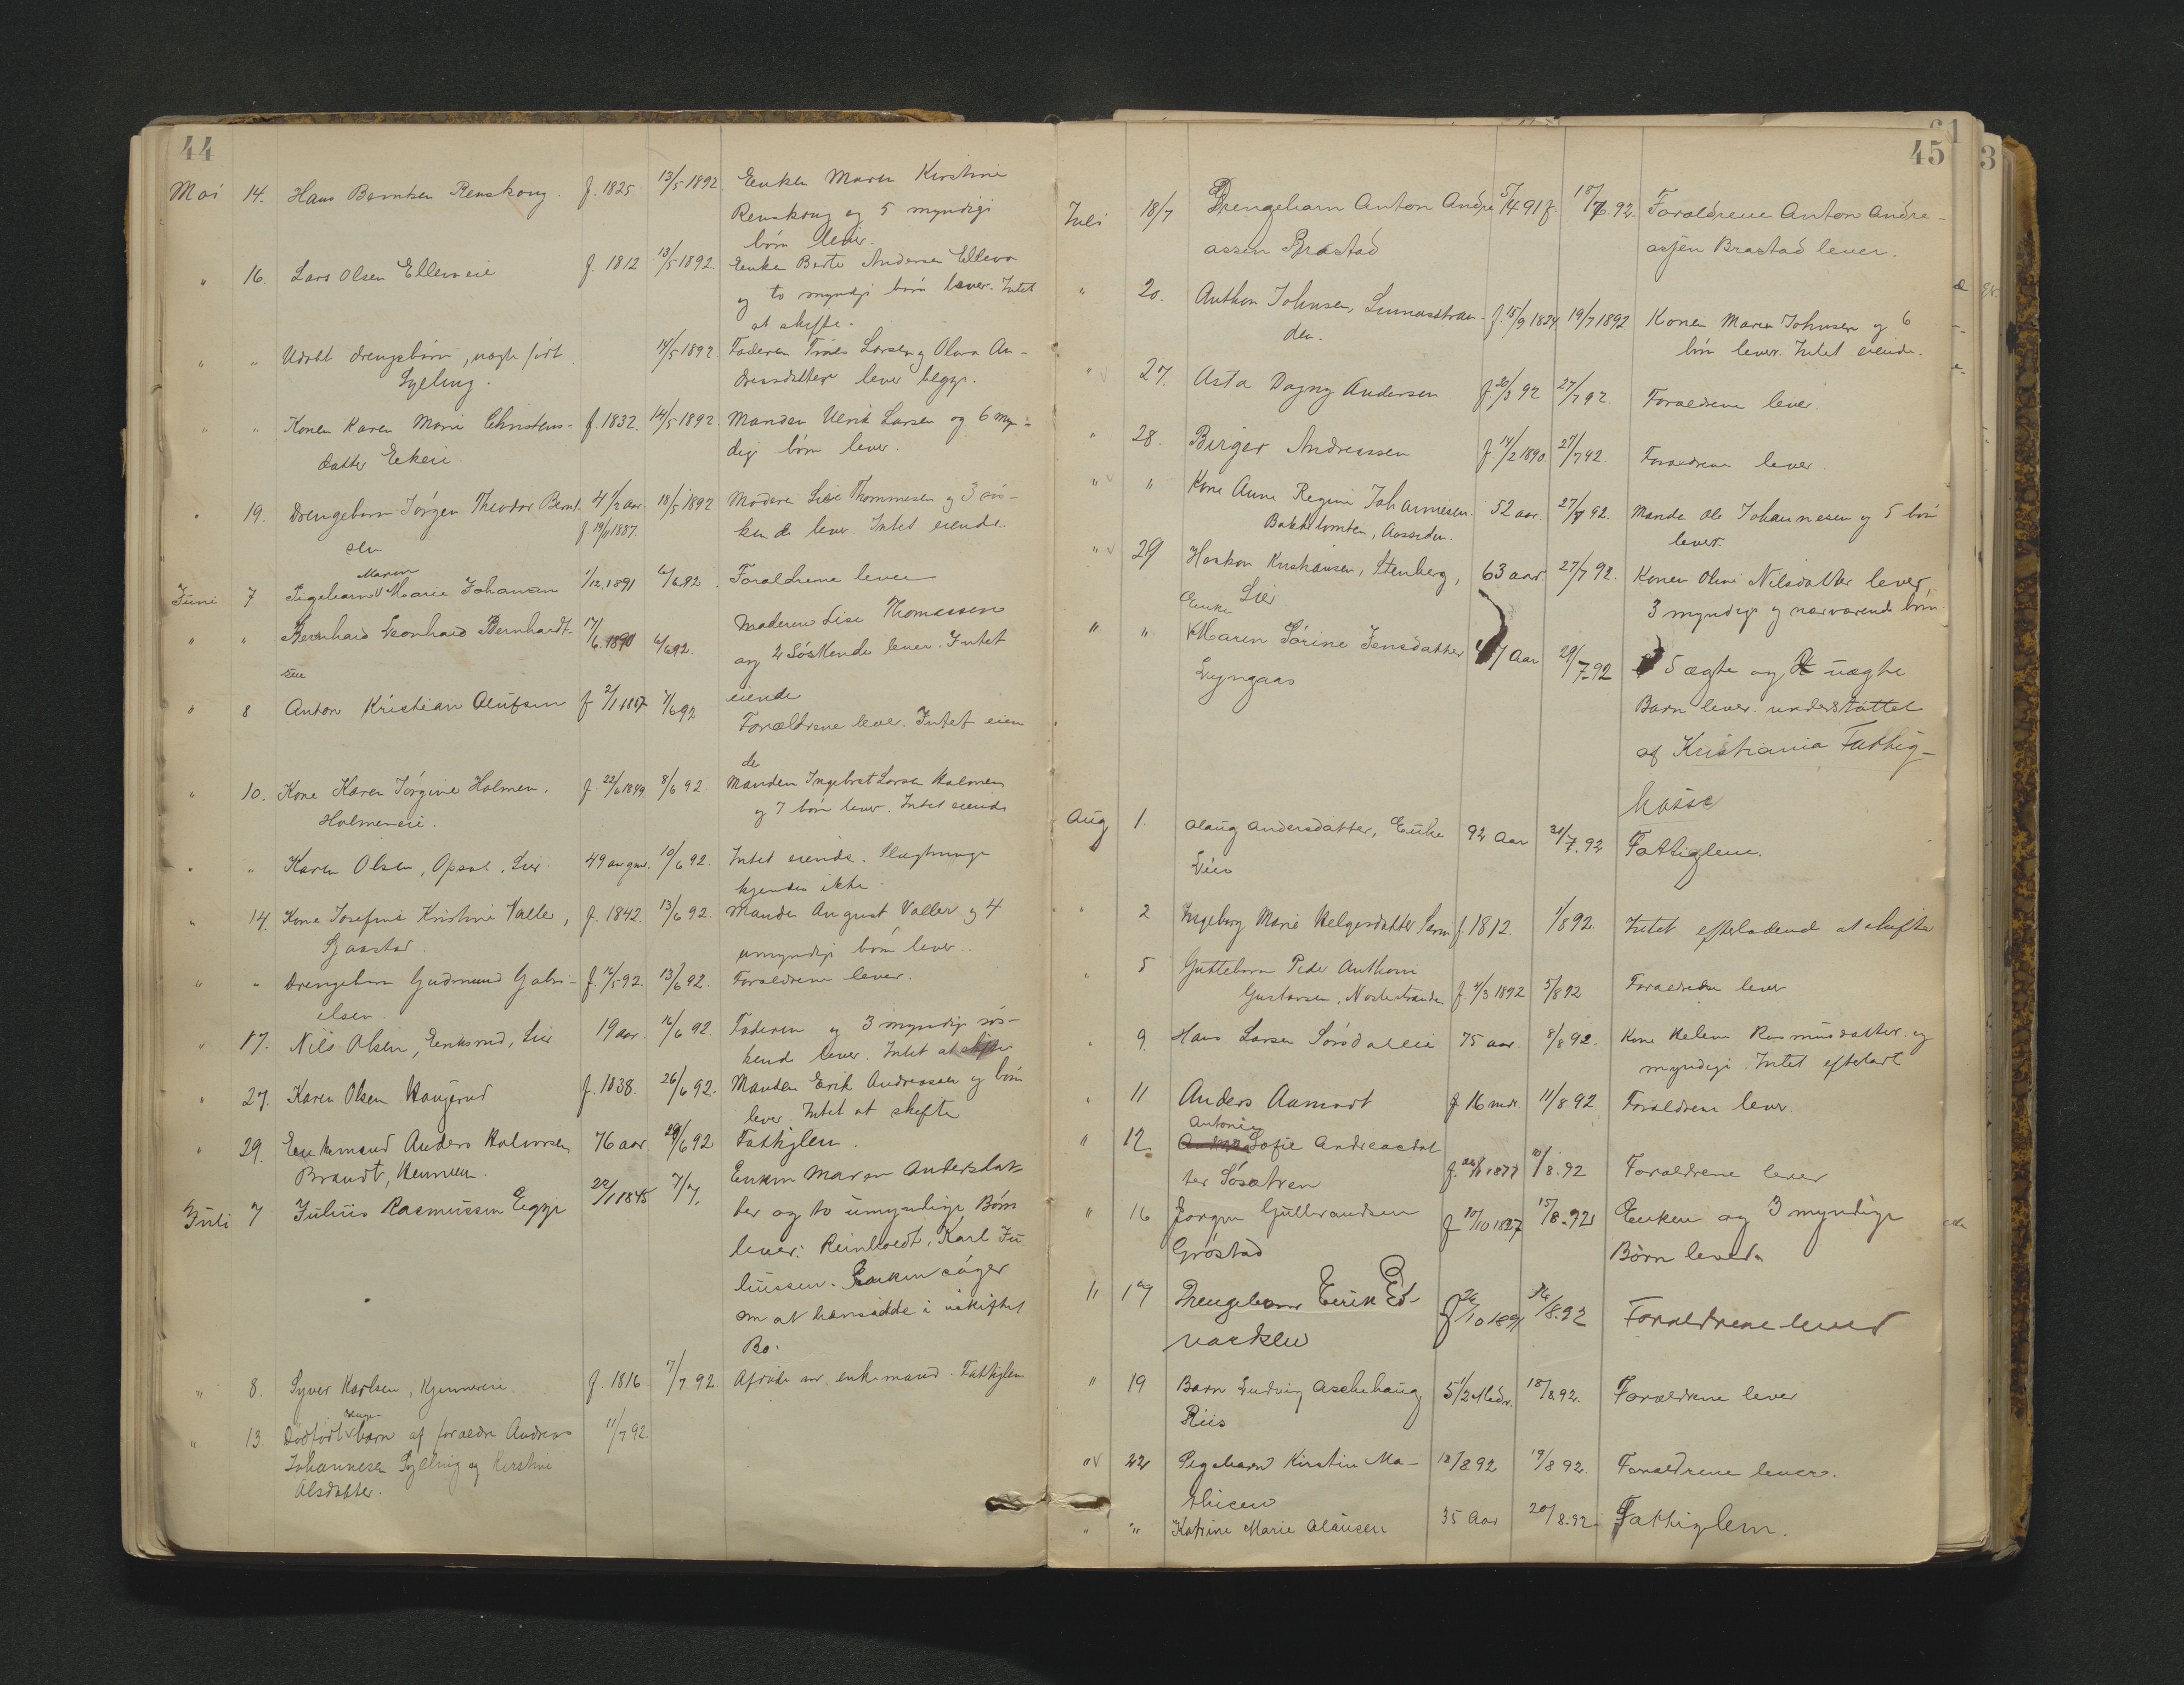 44
Mai 14. Hans Berntsen Renskoug. f. 1825 13/5 1892 Enken Maren Kirstine
Renskoug og 5 myndige
børn lever.
" 16. Lars Olsen Ellewseie f. 1812 13/5 1892. Enke Berte Andersen
og to myndige børn lever. Intet
at skifte.
" " Udøbt drengebørn, uægte født 14/5 1892 Faderen Lorsen og Olava An-
Gjelling. drensdatter lever begge.
" " Konen Karen Marie Christens- f. 1832. 14/5 1892 Manden Ulrik Larsen og 6 myn-
datter Eekeie. dige børn lever.
" 19. Drengebarn Jørgen Theodor Bernt- 4 1/2 aar. 18/5 1892 Moderen Lise Thommesen og 3 søs-
sen f. 19/11 1887. kende lever. Intet eiende.
Maren
Juni 7 Pigebarn Marie Johansen 1/12.1891 6/6.92. Forældrene lever
" " Bernhard Leonhard Bernhardt- 17/6.1890 6/6.92. Moderen Lise Thomassen
sen og 2 Søskende lever. Intet
eiende
" 8 Anton Kristian Olufsen f 2/1 1887 7/6 92 Forældrene lever. Intet eien
de
" 10. Kone Karen Jørgine Holmen. f. 22/6 1849 8/6 92. Manden Ingebret Larsen Holmen
Holmeneie. og 7 børn lever. Intet eiende
" " Karen Olsen, Opsal, Lier 49 aar gml. 10/6 92. Intet eiende. Slægtninge
kjendes ikke.
" 14. Kone Josefine Kristine Valler, f. 1842. 13/6 92. Manden August Valler og 4
Gjaastad. umyndige børn lever.
" " Drengebarn Gudmund Gabri- f. 16/5 92. 13/6 92. Forældrene lever.
elsen.
" 17. Nils Olsen, Eriksrud, Lier 19 aar. 16/6 92. Faderen og 3 myndige søs-
kende lever. Intet at skifte.
" 27. Karen Olsen Haugerud f. 1838. 26/6 92. Manden Erik Andreassen og børn
lever. Intet at skifte
" 29. Enkemand Anders Halvorsen 76 aar 29/6 92 Fattiglem.
Brandt,
Juli 7 Julius Rasmussen Egge 22/1 1845 7/7. Enken Maren Andersdat-
ter og to umyndige Børn
lever: Reinholdt, Karl Ju
liussen. Enken søger
om at hensidde i uskiftet
Bo.
" 8. Syver Karlsen, f. 1816 7/7 92. Afdøde var enkemand. Fattiglem
" 13. Dødfødt barn af forældre Andreas 11/7 92.
Johannesen Gjelling og Kirstine
Olsdatter.
61
45
3
Juli 18/7 Drengebarn Anton Andre 5/4 91 f. 18/7.92. Forældrene Anton Andre-
assen Brastad assen Brastad lever.
" 20. Anthon Johnsen, Linnesstran- f. 15/9 1824 19/7 1892 Konen Maren Johnsen og 6
den. børn lever. Intet eiende.
" 27. Asta Dagny Andersen f. 20/3 92 27/7 92. Forældrene lever.
" 28. Birger Andreassen f 14/2 1890 27/7 92 Forældrene lever.
" " Kone Anne Regine Johannesen. 52 aar. 27/7 92. Mande Ole Johannesen og 5 børn
Baktomten, Aassiden. lever.
" 29 Haakon Kristiansen, Stenberg, 63 aar. 27/7 92. Konen Oline Nilsdatter lever
Lier 3 myndige og nærværende børn.
Enke
" " Maren Sørine Jensdatter 47 Aar 29/7.92 5 ægte og 2 uægte
Lyngaas Barn lever. understøttet
af Kristiania Fattig-
kasse
Aug 1. Olaug Andersdatter, Enke 92 Aar 31/7.92 Fattiglem.
" 2 Ingeborg Marie Helgesdatter f. 1812. 1/8 92. Intet efterladend at skifte
" 5 Guttebarn Peder Anthoni
Gustavsen, Nøstestranden f. 4/3 1892 5/8 92 Forældrene lever
" 9. Hans Larsen Sørsdaleie 75 aar. 8/8 92. Kone Helene Rasmusdatter og
myndige. Intet efterladt
" 11 Anders Aamodt f 16 mdr. 11/8 92 Forældrene lever.
Antonie
" 12. Sofie Andreasdat f. 1877 10/8.92 Forældrene lever
ter Søsætren
" 16 Jørgen Gulbrandsen f 10/10 1827 15/8.92 Enken og 3 myndige
Grøstad Børn lever
" 19 Drengebarn Eirik Ed- f 24/10 1891 /8.92 Forældrene lever
vardsen
" 19 Barn Ludvig Aschehaug 5 1/2 Mdr. 18/8 92. Forældrene lever
Riis
" 22 Pigebarn Kirstin Ma- 18/8 92 19/8 92. Forældrene lever.
thisen
" " Katrine Marie Olausen 35 Aar 20/8.92 Fattiglem.